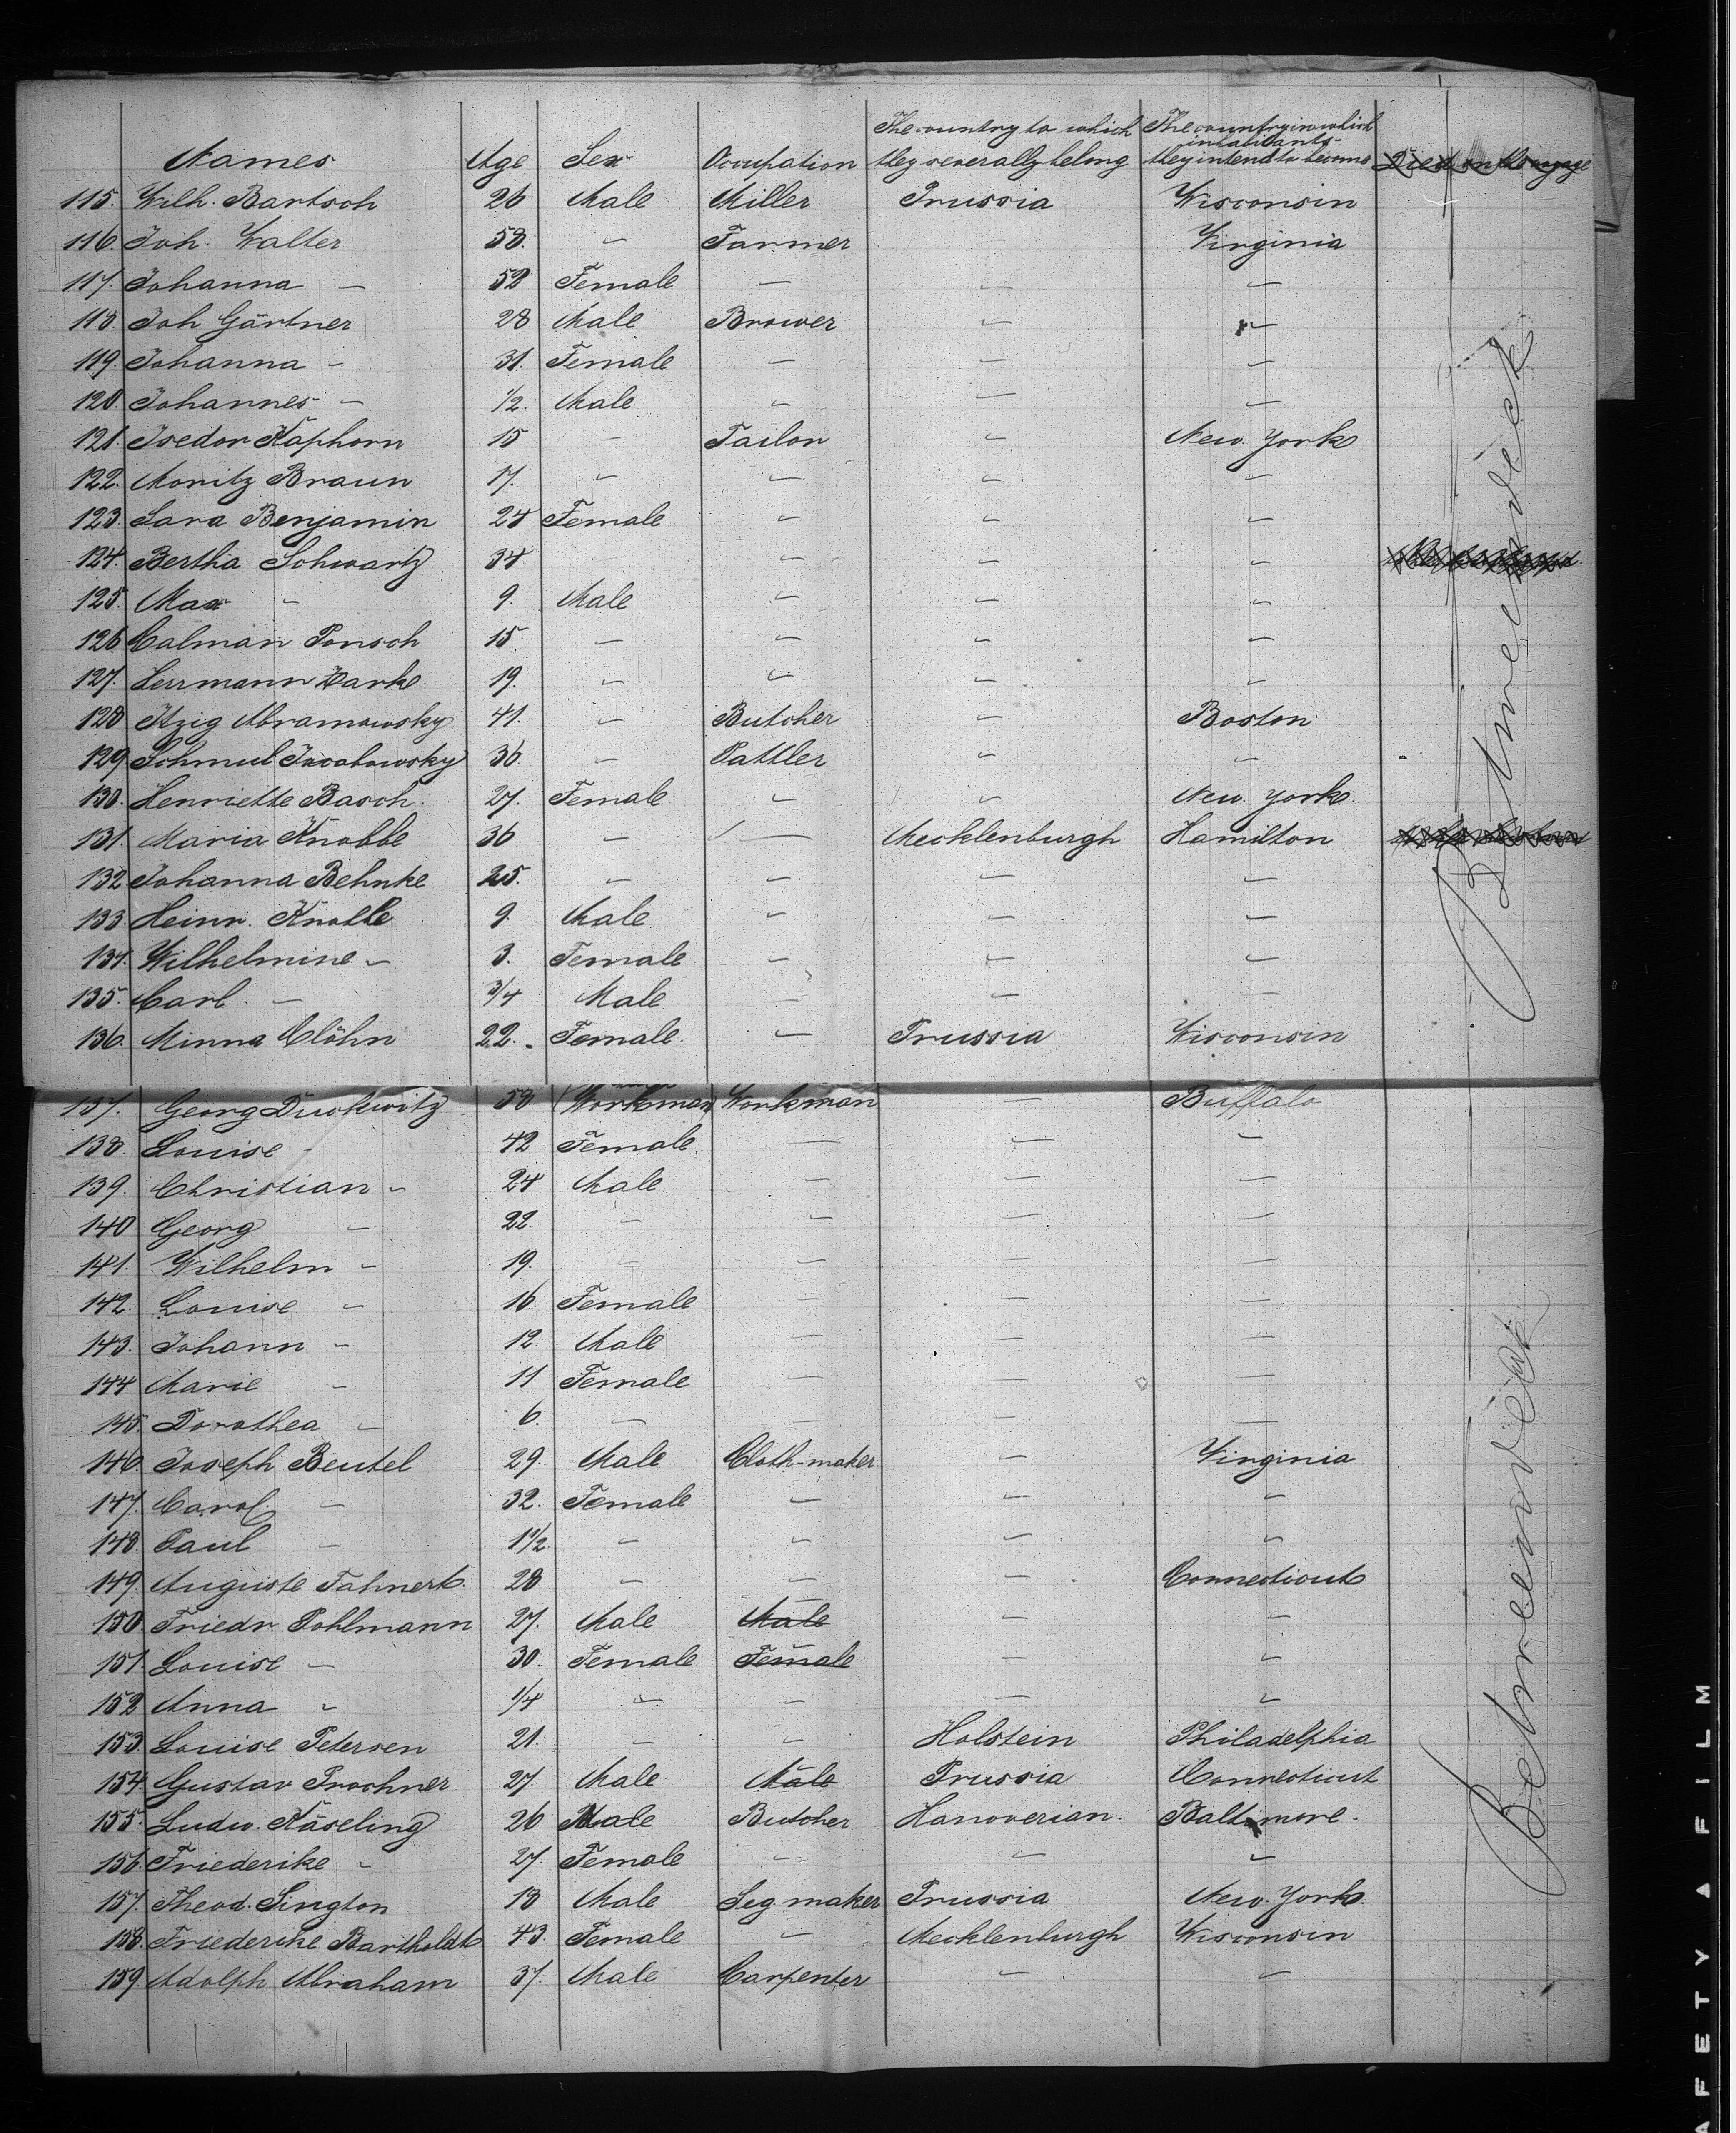 Names Age Sex Occupation The country to which they severally belong The country in which inhabitants they intend to become Died on the voyage
115. Wilh. Bartsch 26 Male Miller Prussia Wisconsin
116. Joh. Walter 58. — Farmer — Virginia
117. Johanna — 52 Female — — —
118. Joh Gärtner 28 Male Brower — —
119. Johanna — 31. Female — — —
120. Johannes — 1/2. Male — — —
121. Isedor Kaphorn 15 — Tailor — New York
122. Moritz Braun 17. — — — —
123. Sara Benjamin 24 Female — — —
124. Bertha Schwartz 34 — — —
125. Max — 9. Male — — —
126. Calman Ponsch 15 — — — —
127. Herrmann Barke 19. — — — —
128 Itzig Abramowsky 41. — Butcher — Boston
129 Schmul Jacobowsky 36. — Pattler — —
130. Henriette Basch. 27. Female — — New York.
131. Maria Knobbe 36 — — Mecklenburgh Hamilton
132 Johanna Behnke 25. — — — —
133. Heinr. Knobbe 9. Male — — —
134. Wilhelmine — 3. Female — — —
135. Carl — 3/4 Male — — —
136. Minna Clöhn 22. Female. — Prussia Wisconsin
137. Georg Duckwitz 58 Workman Workman — Buffalo
138. Louise — 42 Female. — — —
139. Christian — 24 Male — — —
140 Georg — 22. — — — —
141. Wilhelm — 19. — — — —
142. Louise — 16 Female — —
143. Johann — 12. Male — — —
144 Marie — 11 Female — — —
145. Dorothea — 6. — — — —
146. Joseph Beutel 29. Male Cloth-maker — Virginia
147. Carol. — 32. Female — — —
148. Paul — 1 1/2. — — — —
149. Auguste Fahnert. 28 — — — Connecticut
150. Friedr Pohlmann 27. Male Male — —
151. Louise — 30. Female Female — —
152 Anna — 1/4 — — — —
153. Louise Petersen 21. — — Holstein Philadelphia
154. Gustav Prochner 27. Male Male Prussia Connecticut
155. Ludw. Käseling 26 Male Butcher Hanoverian. Baltimore.
156. Friederike — 27. Female — — —
157. Theod. Sington 18 Male Seg maker Prussia New York.
158. Friederike Bartholdt 43. Female — Mecklenburgh Wisconsin
159. Adolph Abraham 37. Male Carpenter — —
Betweendeck
Betweendeck
AFETY ▲ FILM